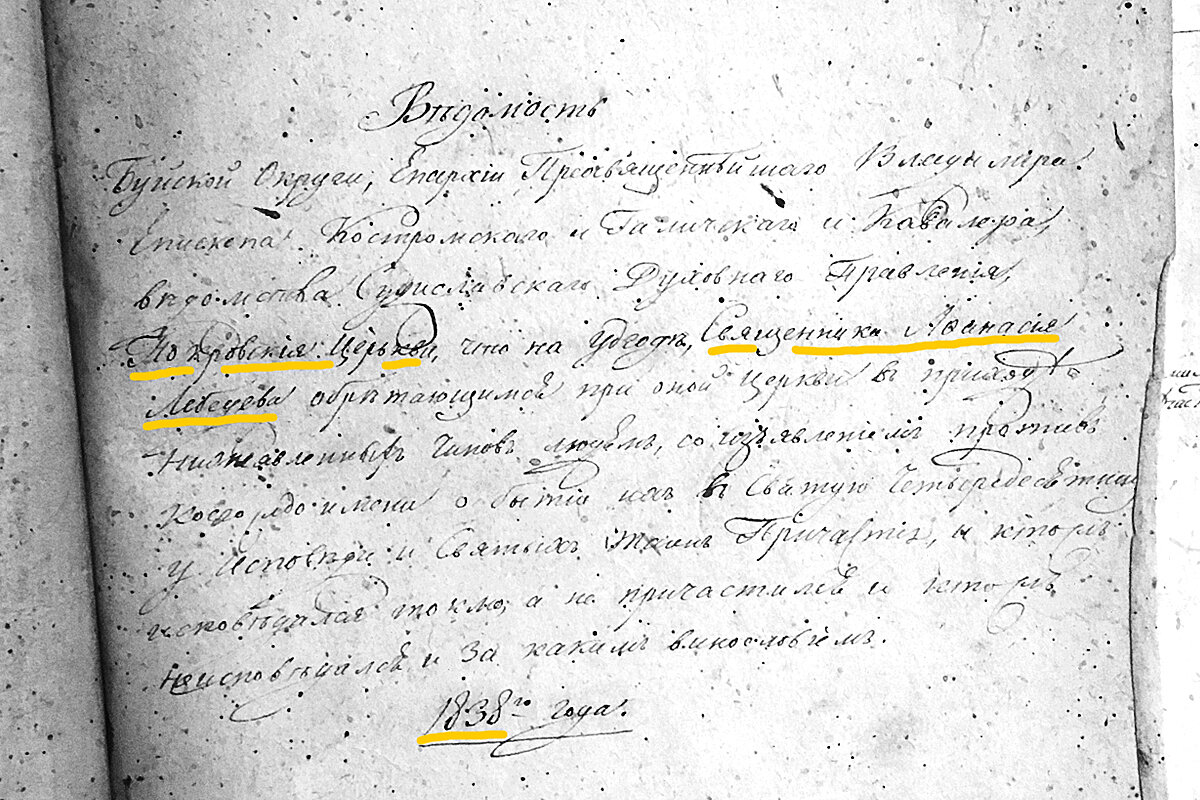 Вѣдомость
Буйской Округи, Епархіи Преосвященнѣйшаго Владиміра
Епископа Костромскаго и Галичскаго и Кавалера,
вѣдомства Судиславскаго Духовнаго Правленія,
Покровскія Церькви, что на Священника Аѳанасія
Лебедева обрѣтающимся при оной Церкви въ приходѣ
нижеявленныхъ чиновъ людемъ, со изъявленіемъ противъ
коегождо имени о бытіи ихъ въ Святую Четыредесятницу
у Исповѣди и Святыхъ Таинъ Причастія, и ктожъ
исповѣдался токмо, а не причастился и ктожъ
неисповѣдался и за какимъ винословіемъ.
1838го года.